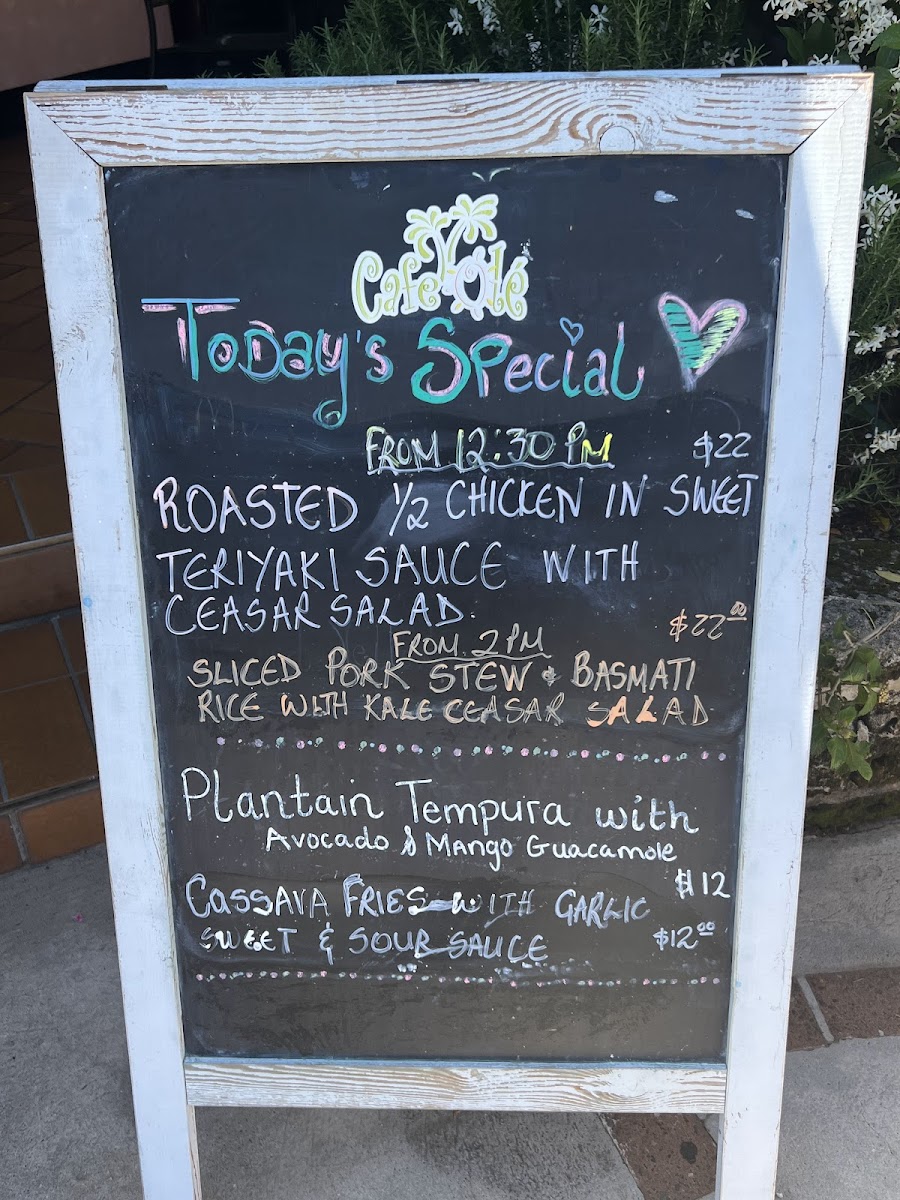 Cafe Olé
Today's Special
FROM 12:30 PM $22
ROASTED 1/2 CHICKEN IN SWEET
TERIYAKI SAUCE WITH
CEASAR SALAD.
$22.00
FROM 2 PM
SLICED PORK STEW & BASMATI
RICE WITH KALE CEASAR SALAD
Plantain Tempura with
Avocado & Mango Guacamole
$12
CASSAVA FRIES WITH GARLIC
SWEET & SOUR SAUCE $12.00